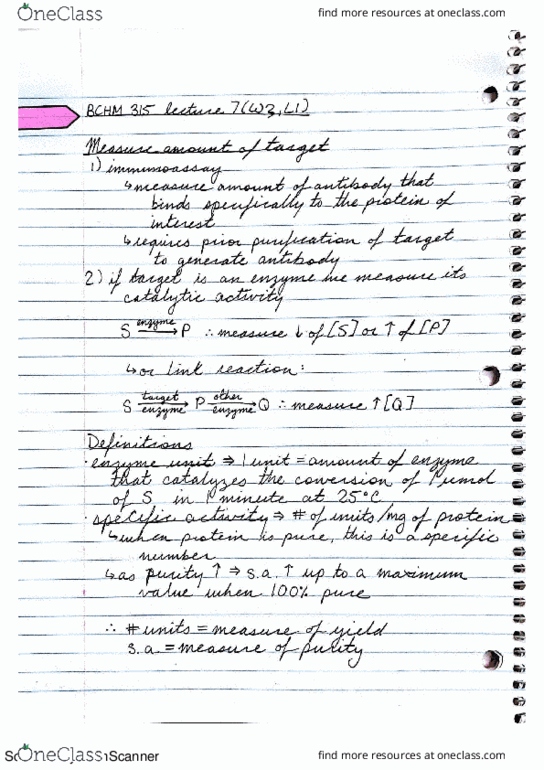 OneClass
find more resources at oneclass.com
BCHM 315 lecture 7 (W3, L1)
Measure amount of target
1) immunoassay
↳ measure amount of antibody that
binds specifically to the protein of
interest
↳ requires prior purification of target
to generate antibody
2) if target is an enzyme we measure its
catalytic activity
S enzyme→ P ∴ measure ↓ of [S] or ↑ of [P]
↳ or link reaction:
S target enzyme→ P other enzyme→ Q ∴ measure ↑ [Q]
Definitions
· enzyme unit ⇒ 1 unit = amount of enzyme
that catalyzes the conversion of 1 µmol
of S in 1 minute at 25°C
· specific activity ⇒ # of units/mg of protein
↳ when protein is pure, this is a specific
number
↳ as purity ↑ ⇒ s.a. ↑ up to a maximum
value when 100% pure
∴ # units = measure of yield
s.a = measure of purity
OneClass
Scanner
find more resources at oneclass.com